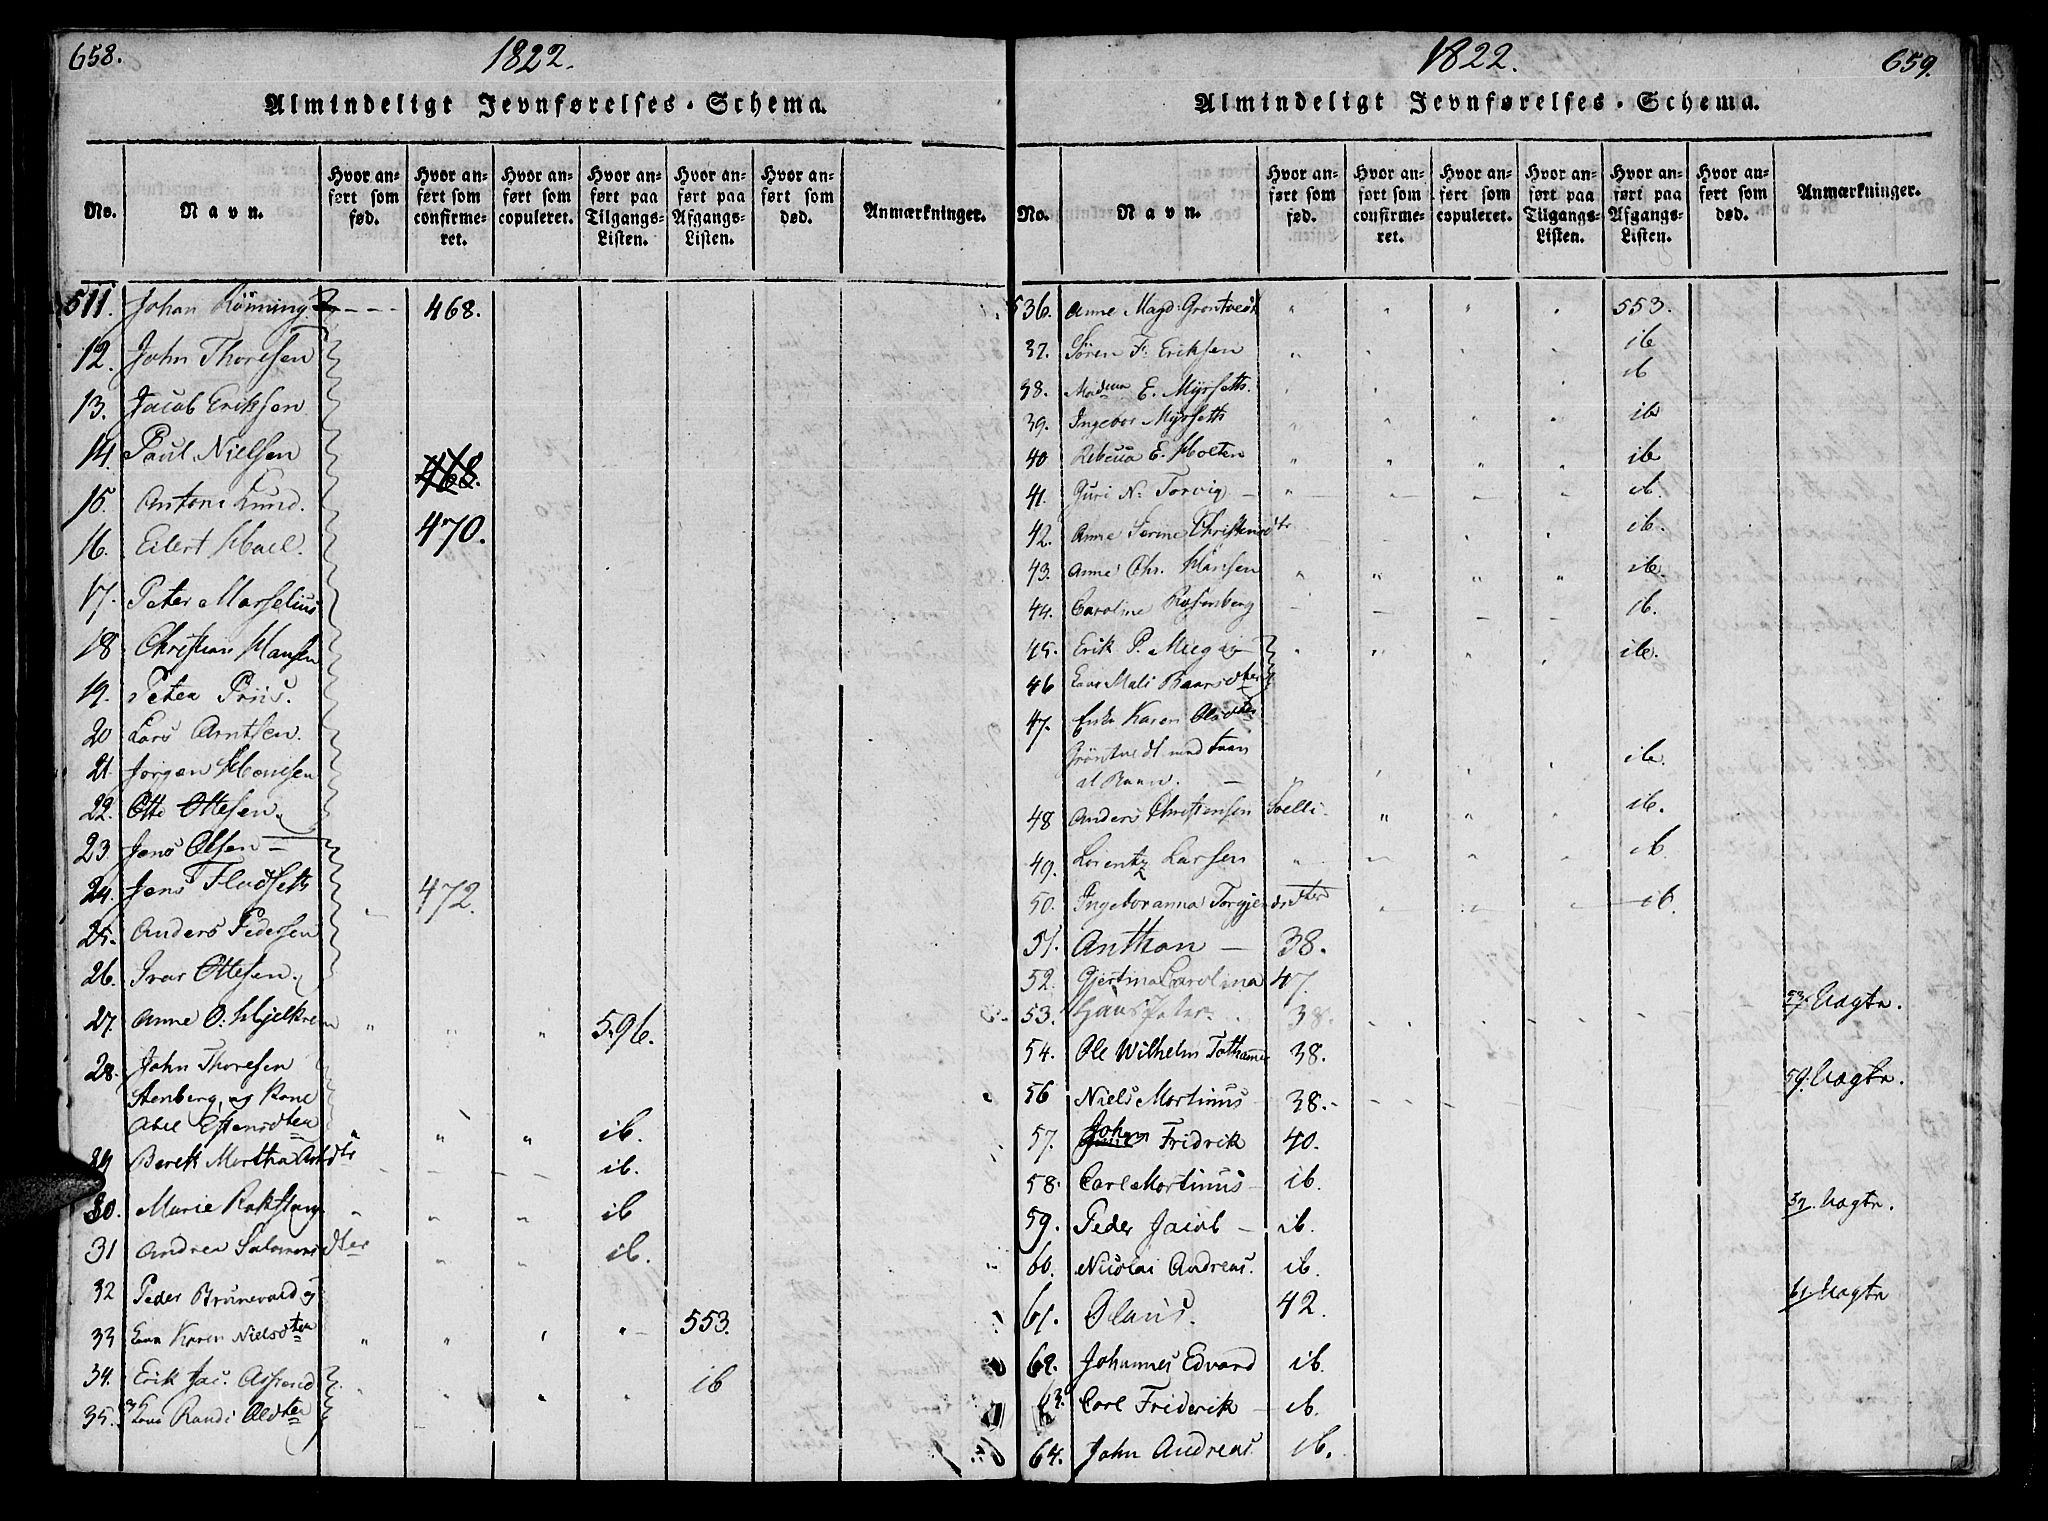 658.
1822.
Almindeligt Jevnførelses-Schema.
No.
Navn.
Hvor anført som fød.
Hvor anført som confirmeret.
Hvor anført som copuleret.
Hvor anført paa Tilgangs-Listen.
Hvor anført paa Afgangs-Listen.
Hvor anført som død.
Anmærkninger.
511. Johan Rönning 468.
12. John Thoresen
13. Jacob Eriksen
14. Paul Nielsen
468.
15. Anton Lund.
470.
16. Eilert
17. Peter Marselius
18 Christian Hansen
19. Peter Priis.
20 Lars Arntsen.
21. Jørgen
22. Otto Ottesen.
23. Jens Olsen
24. Jens Fladseth 472.
25. Anders Pedersen
26. Ivar Ottesen.
27. Anne O: Hjelkrem " " " 596.
28. John Thoresen
Stenberg, og Kone
Ester " " " ib.
29 Berek Martha ib.
30. Marie ib
31 Andrea Salomonsdter ib.
32 Peder Brunevold og
33 Kona Karen Nielsdter " " " " 553.
34. Erik Jac: ib
35. Kone Randi Olsdter
1822.
659.
Almindeligt Jevnførelses-Schema.
No.
Navn.
Hvor anført som fød.
Hvor anført som confirmeret.
Hvor anført som copuleret.
Hvor anført paa Tilgangs-Listen.
Hvor anført paa Afgangs-Listen.
Hvor anført som død.
Anmærkninger.
536. Anne Magd: Grontvedt " " " " 553.
37. Sören F: Eriksen ib
38. E. Myrseth. ib
39. Ingebor Myrseth ib
40 Rebecca E. Holten ib
41. Guri N: Torvig ib.
42. Anne Serine Christensdtr ib.
43. Anne Chr. Hansen ib.
44. Caroline Rosenberg ib.
45. Erik P. ib.
46 Kone Mali
47. Enke Karen Olsdter
Gröntvedt med
Barn. ib.
48 Anders Christensen Svelli. ib.
49. Lorentz Larsen ib.
50. Ingeboranna ib.
51. Anthon — 38.
52. Gjertina Carolina 47.
53. Hans Peter. 38. 53. Vagtn.
54. Ole Wilhelm 38.
59. Vagtn.
56 Niels Martinus 38.
57. Johan Fridrik 40.
58. Carl Martinus ib.
59. Peder Jacob — ib. 39. Vagtn.
60. Nicolai Andreas. ib.
61. Olaus. 42. 61 Vagtn
62. Johannes Edvard ib.
63. Carl Friderik ib.
64. John Andreas ib.